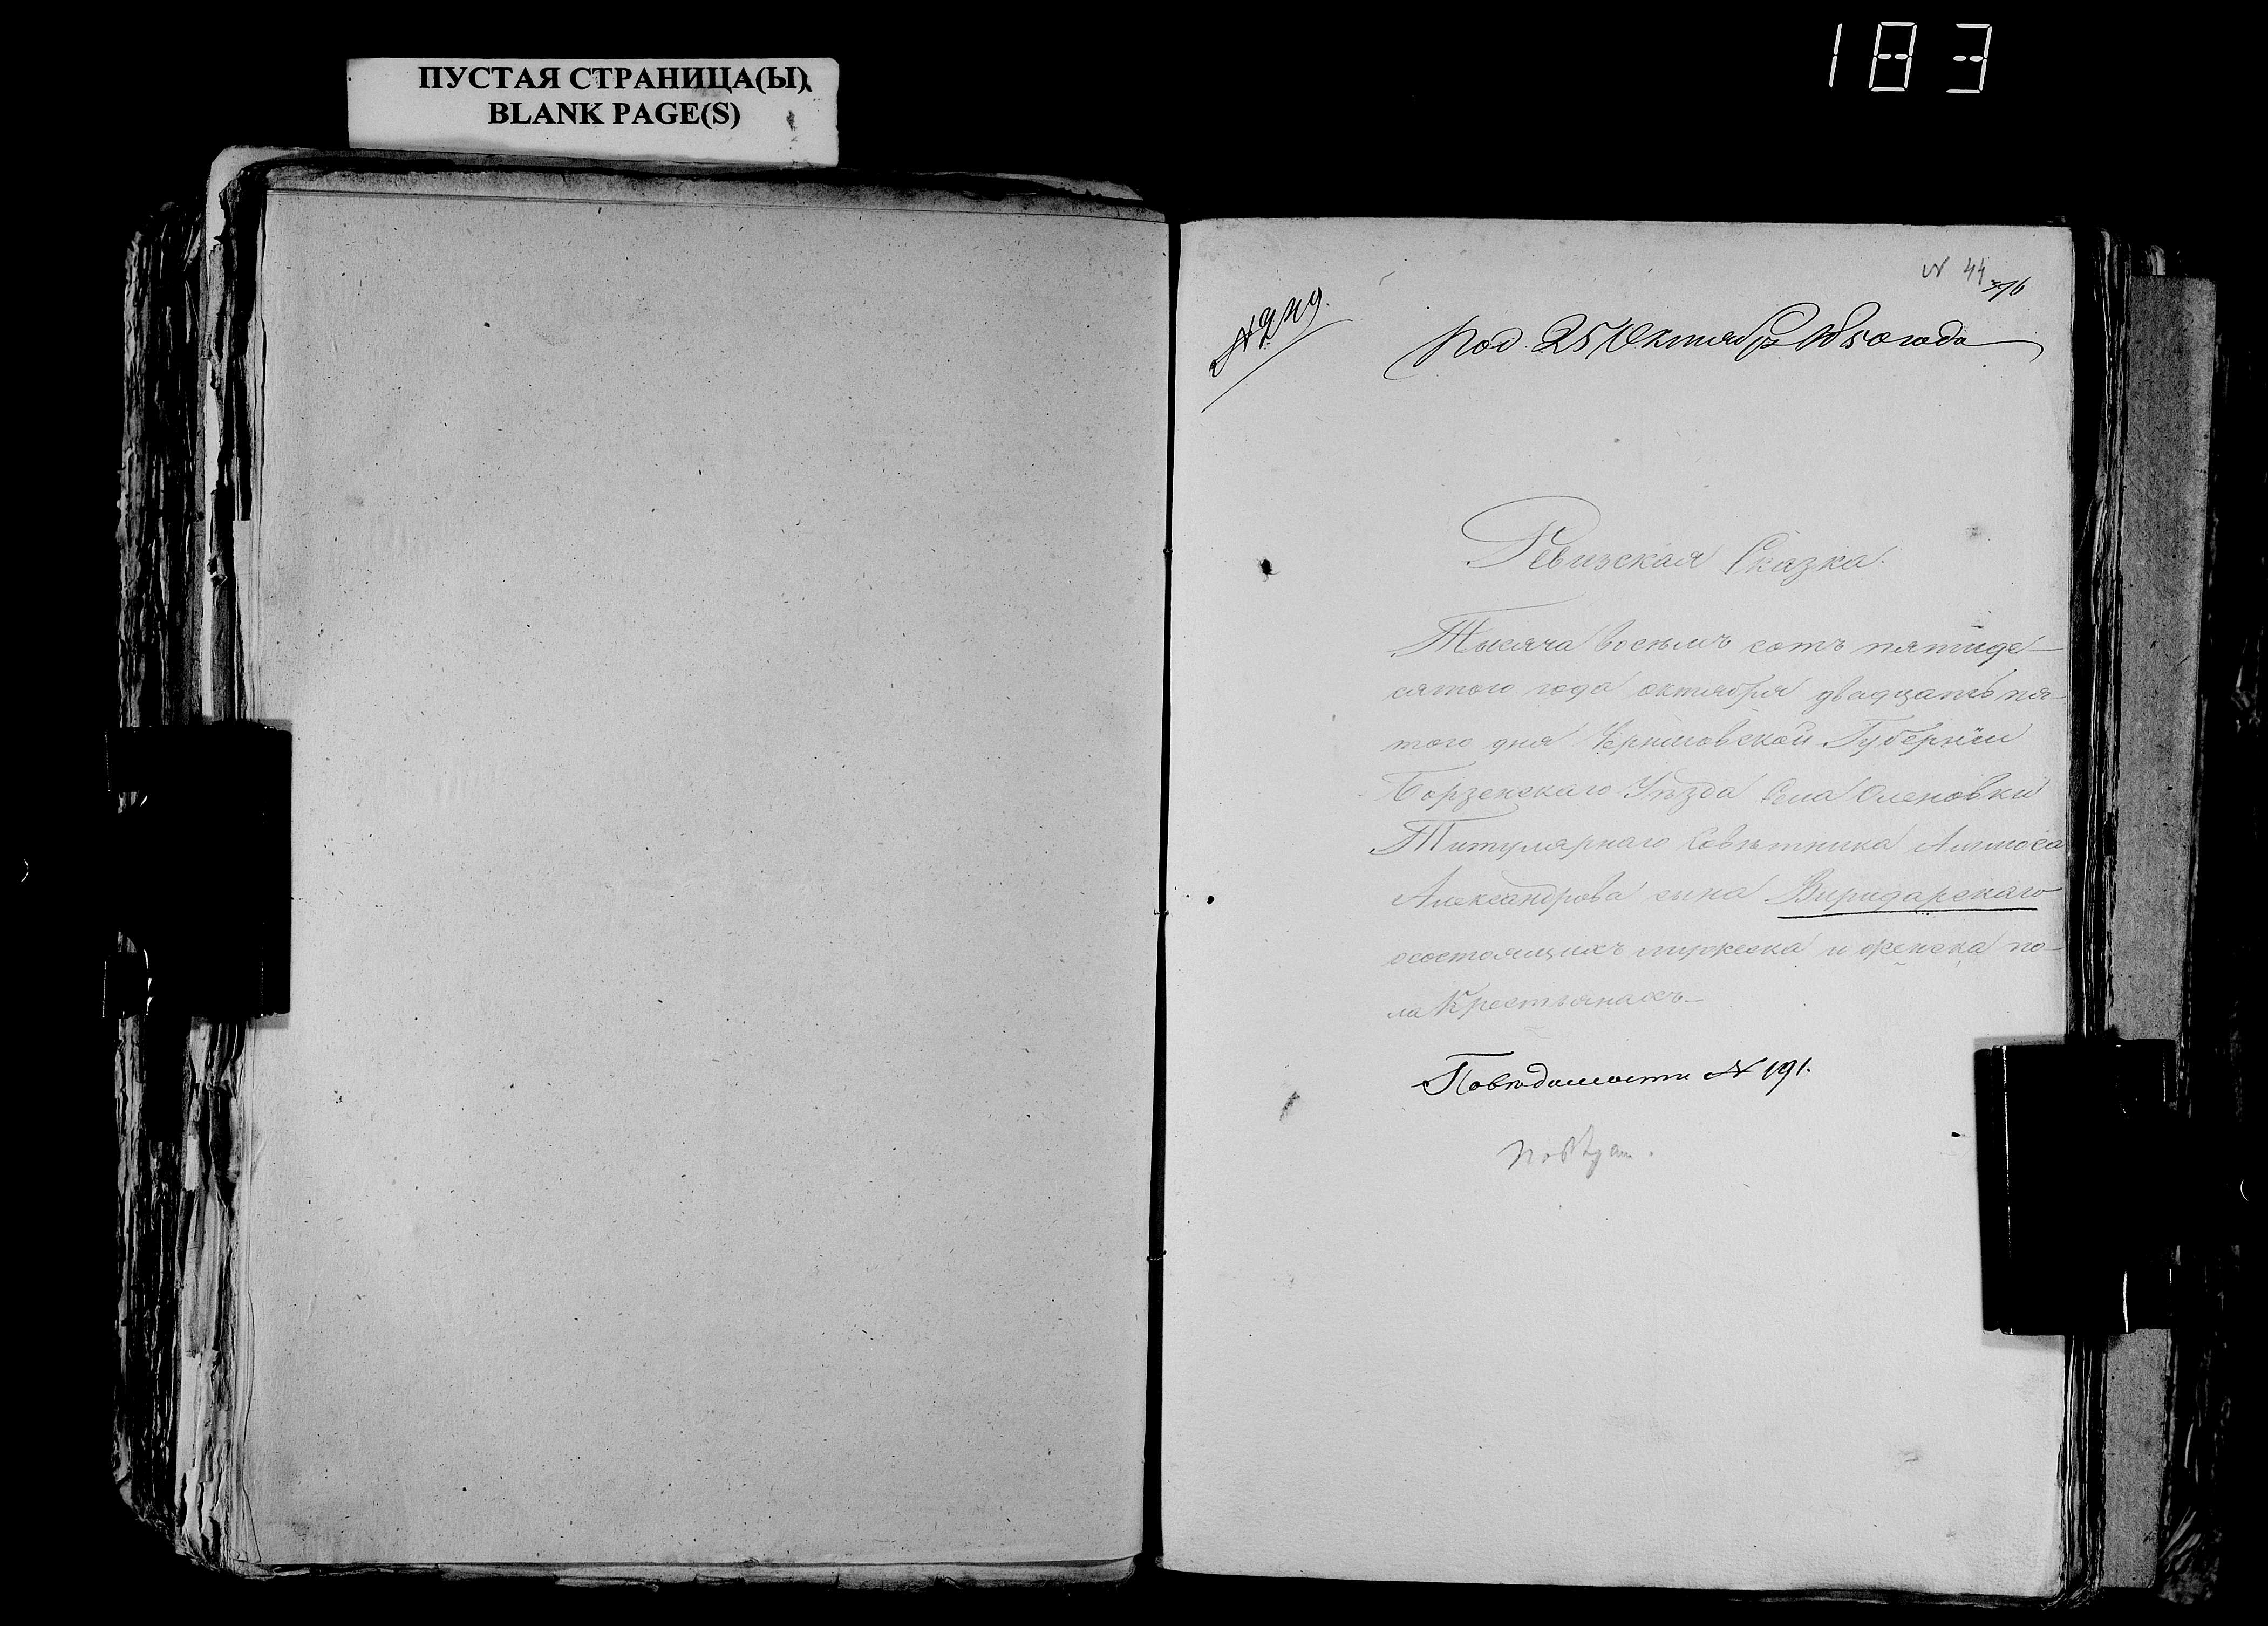 183
ПУСТАЯ СТРАНИЦА(Ы)
BLANK PAGE(S)
№ 44
№ 249.
Под. 25 Октября 1850 года
Ревизская Сказка.
Тысяча восемъ сотъ пятиде-
сятого года октября двадцать пя-
того дня Черниговской Губерніи
Борзенскаго Уѣзда Села Оленовки
Титулярнаго Совѣтника
Александрова сына Виридарскаго
осостоящихъ мужеска и женска по-
ла Крестьянахъ.
Повѣдомости № 191.